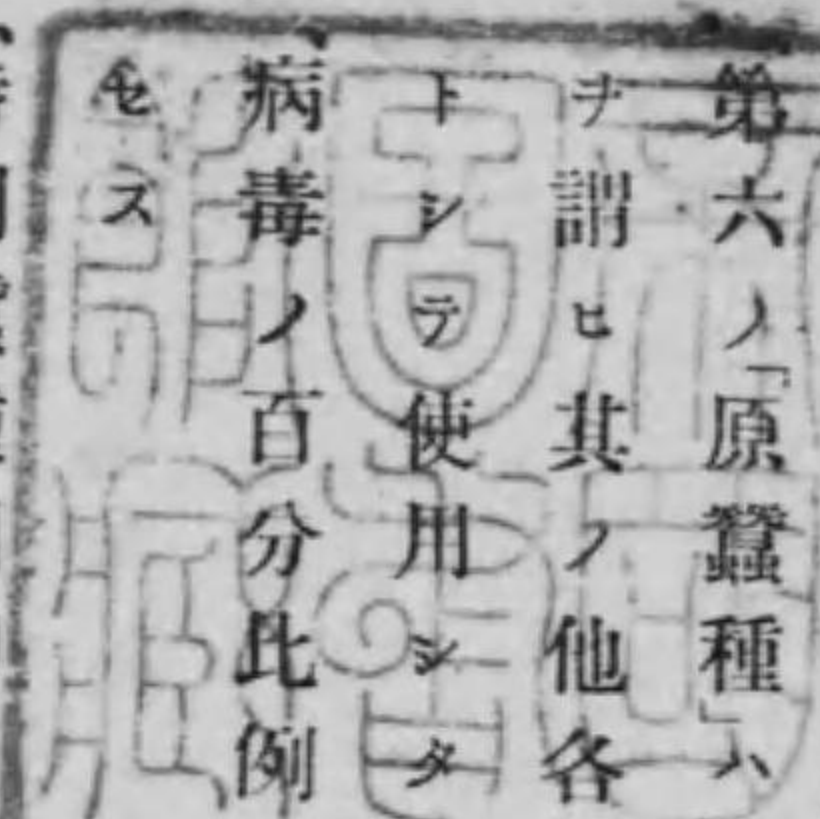 第六ノ「原蠶種」ハ
ヲ謂ヒ其ノ他各
トシテ使用シタ
病毒ノ百分比例
セス